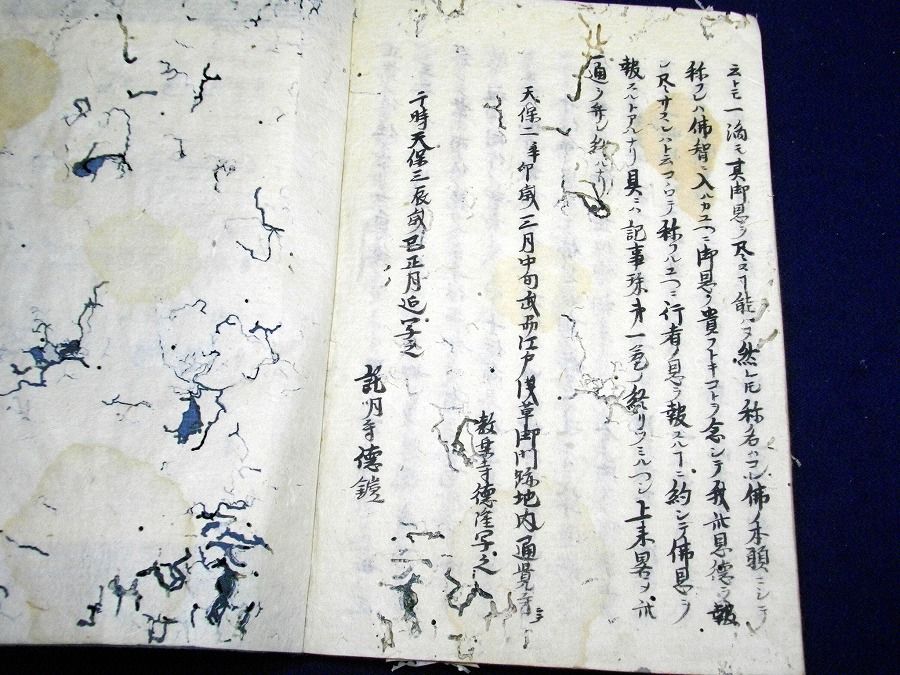 云トモ一滴モ其御恩ヲ尽スヿ能ハス然ルニ称名ハコレ佛ノ本願ニシテ
称フレハ佛智ニ入ルカユヘニ御恩ヲ貴フトキコトヲ念シテ我此恩徳ヲ報
尽サスレハト云コヽロテ称フルユヘニ行者ノ恩ヲ報スルヿニ約シテ佛恩ヲ
報スルトアルナリ具ニハ記事珠第一巻ノ終リヲミルヘシ上来畧メ此
一通ヲ弁シ終ルナリ
天保二辛卯歳三月中旬武州江戸浅草御門跡地内通覚寺ニ
教楽寺徳隆写之
于時天保三辰歳正月近写之
託明寺徳鎧